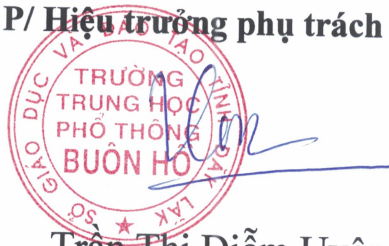 P/ Hiệu trưởng phụ trách
SỞ GIÁO DỤC VÀ ĐÀO TẠO TỈNH ĐẮK LẮK
TRƯỜNG
TRUNG HỌC
PHỔ THÔNG
BUÔN HỒ
Trần Thị Diễm